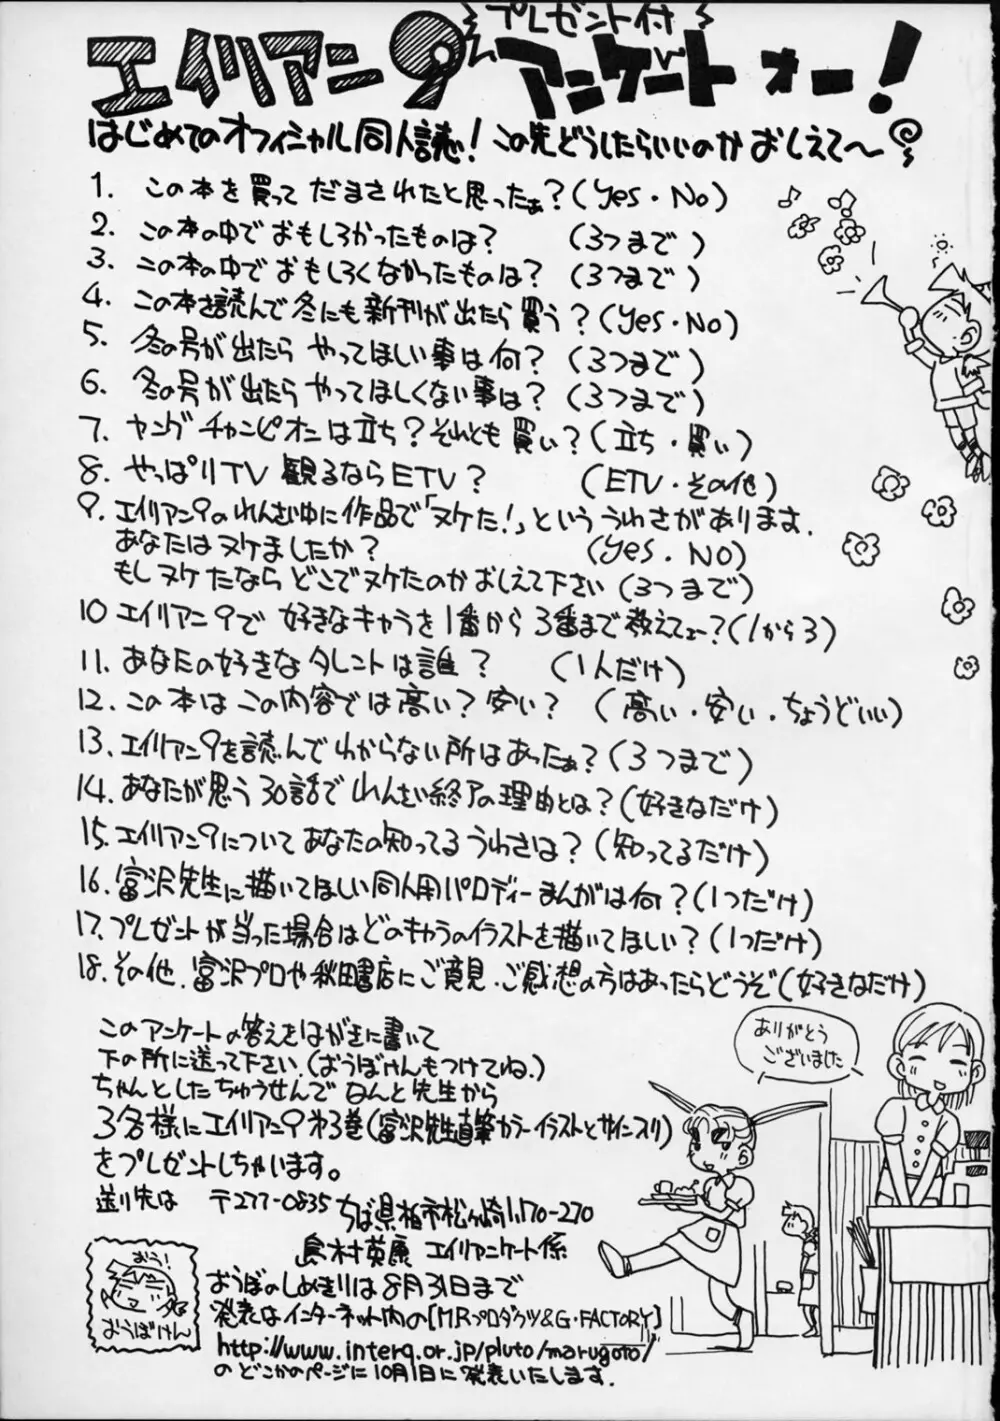 プレゼント付
エイリアン9 アンケートォー!
はじめてのオフィシャル同人誌! この先どうしたらいいのか おしえて〜
1. この本を買って だまされたと思ったぁ?(Yes・No)
2. この本の中でおもしろかったものは? (3つまで)
3. この本の中で おもしろくなかったものは? (3つまで)
4. この本を読んで冬にも新刊が出たら買う?(Yes・No)
5. 冬の号が出たら やってほしい事は何? (3つまで)
6. 冬の号が出たら やってほしくない事は? (3つまで)
7. ヤングチャンピオンは立ち?それとも買い?(立ち・買い)
8. やっぱりTV 観るならETV? (ETV・その他)
9. エイリアン9のれんさい中に作品で「ヌケた!」といううわさがあります.
あなたはヌケましたか? (Yes・NO)
もしヌケたなら どこでヌケたのか おしえて下さい (3つまで)
10 エイリアン9で 好きなキャラを1番から3番まで教えてェー?(1から3)
11. あなたの好きなタレントは誰? (1人だけ)
12. この本は この内容では高い?安い? (高い・安い・ちょうどいい)
13. エイリアン9を読んで わからない所はあったぁ?(3つまで)
14. あなたが思う30話で れんさい終了の理由とは?(好きなだけ)
15. エイリアン9について あなたの知ってるうわさは?(知ってるだけ)
16. 富沢先生に描いてほしい同人用パロディーまんがは何?(1つだけ)
17. プレゼントが当った場合はどのキャラのイラストを描いてほしい?(1つだけ)
18. その他.富沢プロや秋田書店にご意見・ご感想の方はあったらどうぞ(好きなだけ)
このアンケートの答えをはがきに書いて
下の所に送って下さい.(おうぼけんもつけてね.)
ちゃんとしたちゅうせんで なんと先生から
3名様にエイリアン9 第3巻(富沢先生直筆カラーイラストとサイン入り)
をプレゼントしちゃいます。
送り先は 〒277-0835 ちば県柏市松ヶ崎1170-270
島村英康 エイリアンケート係
おうぼのしめきりは8月31日まで
発表はインターネット内の[M.R.プロダクツ&G・FACTORY]
http://www.interq.or.jp/pluto/marugoto/
の どこかのページに10月1日に発表いたします.
おうぼけん
ありがとう
ございました